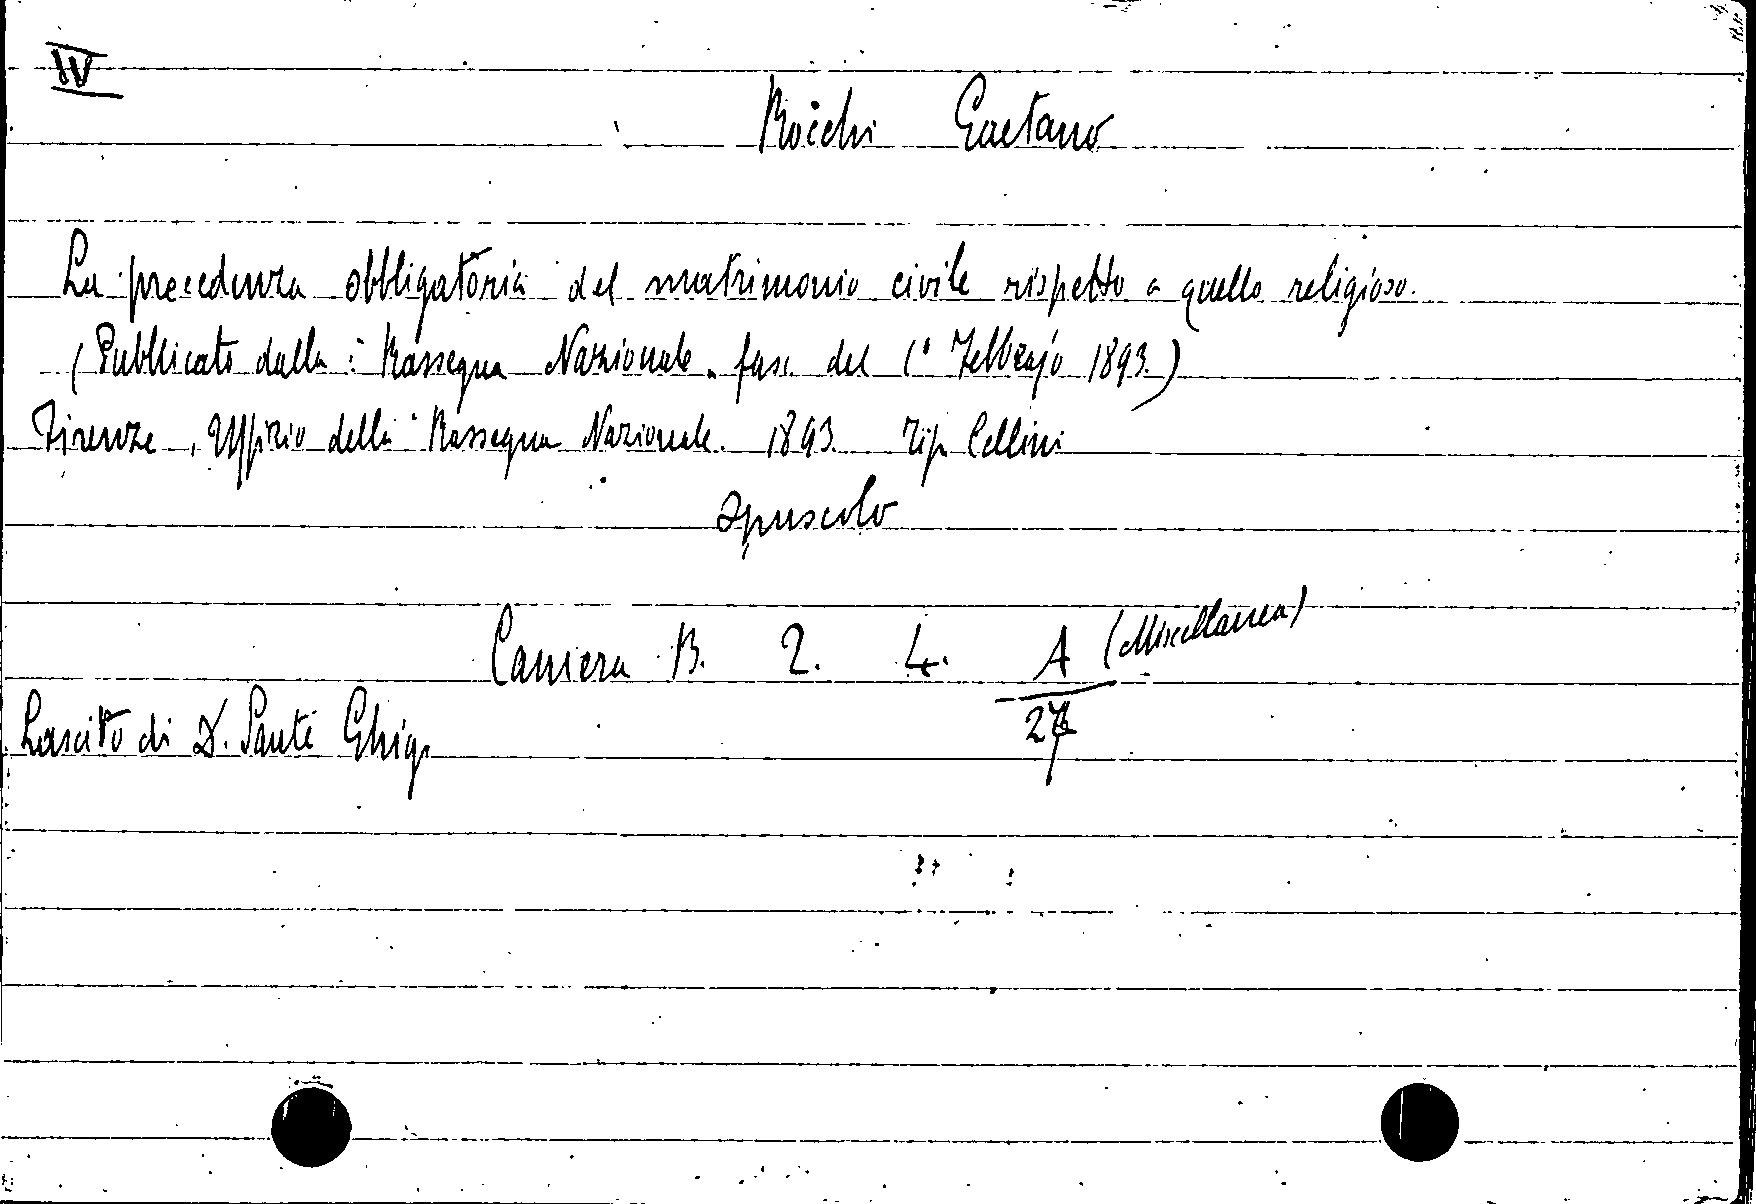 IV
Rocchi Gaetano
La precedenza obbligatoria del matrimonio civile rispetto a quello religioso.
(Pubblicato dalla: Rassegna Nazionale. fasc. del 1° Febbrajo 1893.)
Firenze, Uffizio della Rassegna Nazionale. 1893. Tip. Cellini
opuscolo
Camera B. 2. 4. A (Miscellanea)
Lascito di D. Sante Ghigi